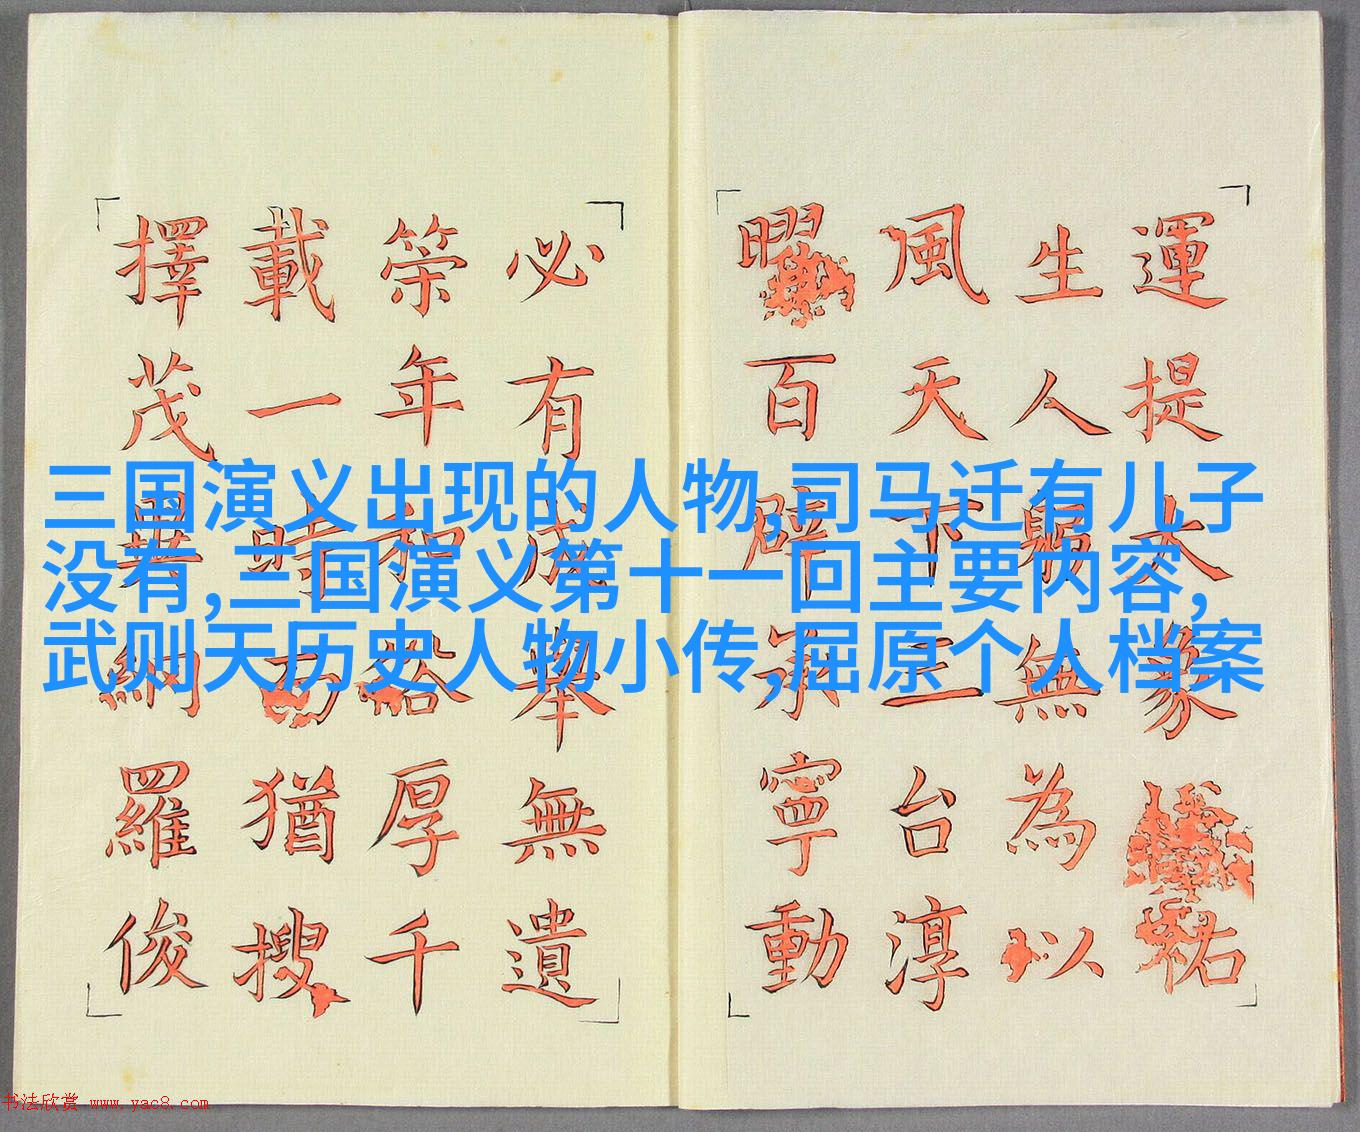 三国演义出现的人物,司马迁有儿子
没有,三国演义第十一回主要内容,
武则天历史人物小传,屈原个人档案
運提大象祐
生人無為以
風天下三台淳
曜百辟承寧動
必有舉無遺
年裕厚千
載一時猶搜
擇茂異網羅俊
书法欣赏 www.yac8.com